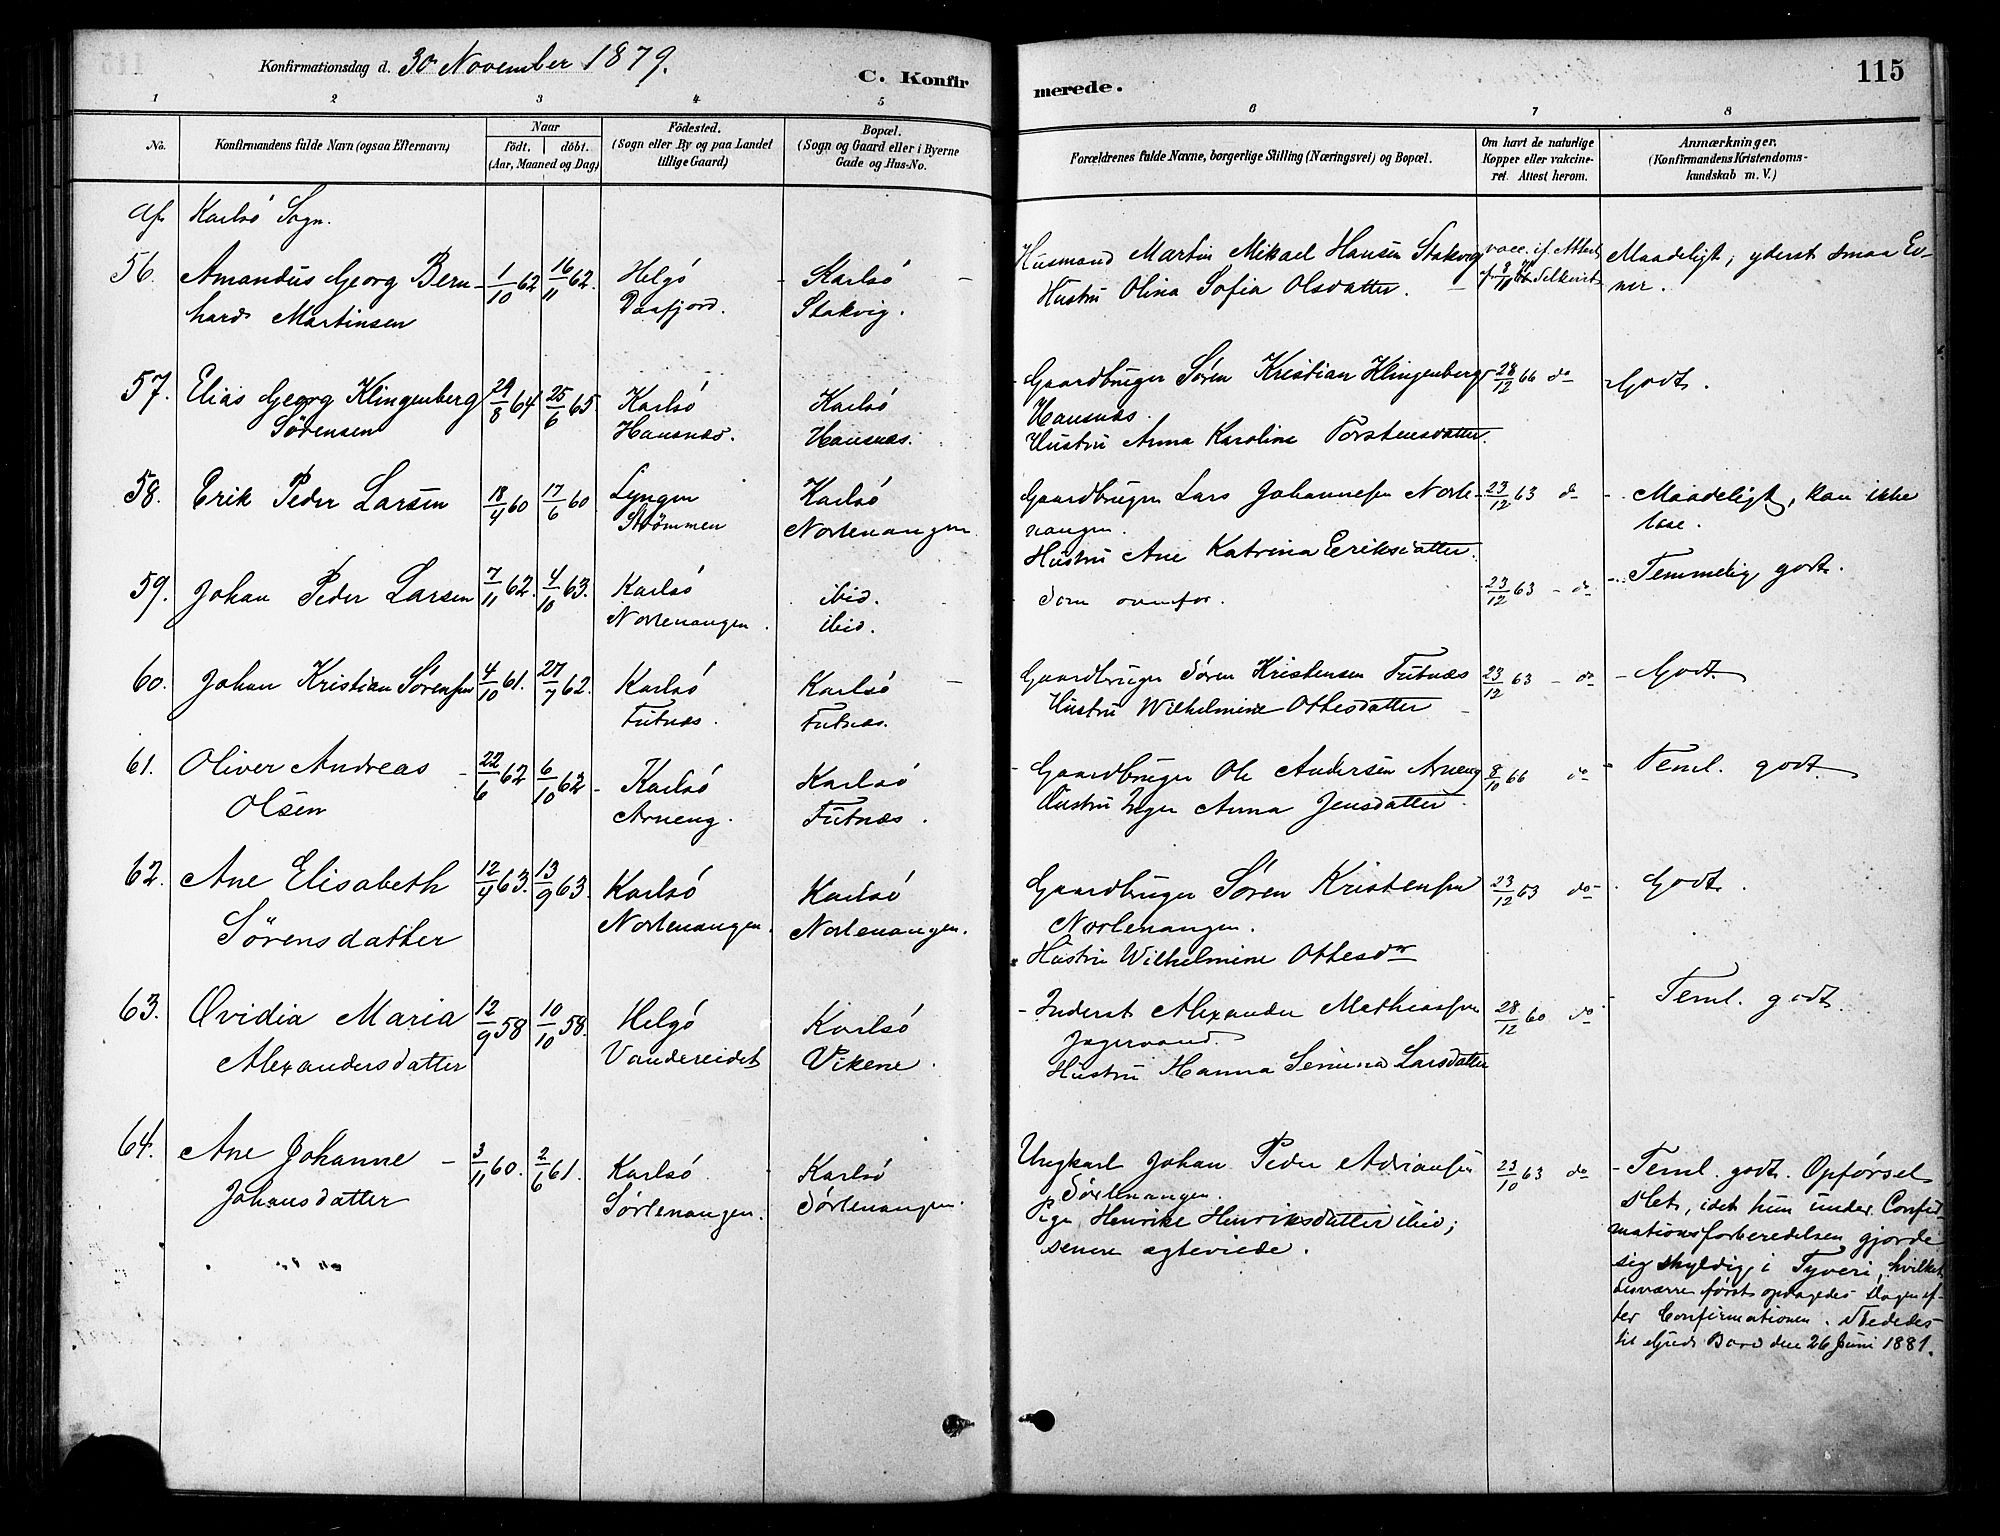 Konfirmationsdag d. 30 November 1879.
C. Konfirmerede.
115
1 2 3 4 5 6 7 8
No.
Konfirmandens fulde Navn (ogsaa Efternavn)
Naar
födt. döbt.
(Aar, Maaned og Dag)
Födested.
(Sogn eller By og paa Landet
tillige Gaard)
Bopæl.
(Sogn og Gaard eller i Byerne
Gade og Hus-No.
Forældrenes fulde Navne, borgerlige Stilling (Næringsvei) og Bopæl.
Om havt de naturlige
Kopper eller vakcine-
ret. Attest herom.
Anmærkninger.
(Konfirmandens Kristendoms-
kundskab m. V.)
Af Karlsö Sogn.
56. Amandus Georg Bern-
hard Martinsen
1/10 62 16/11 62.
Helgö
Daafjord.
Karlsö
Stakvig.
Husmand Martin Mikael Hansen Stakvig
Hustru Olina Sofia Olsdatter.
vacc. if. Attest
Maadeligt, yderst smaa Ev-
ner.
57. Elias Georg Klingenberg
Sörensen
29/8 64 25/6 65.
Karlsö
Hansnæs.
Karlsö
Hansnæs.
Gaardbruger Sören Kristian Klingenberg
Hansnæs.
Hustru Anna Karoline Torstensdatter.
28/12 66 do
Godt.
58. Erik Peder Larsen
18/4 60 17/6 60
Lyngen
Strömmen
Karlsö
Nordenangen
Gaardbruger Lars Johannesen Norde-
nangen.
Hustru Ane Katrina Eriksdatter.
23/12 63 do
Maadeligt, kan ikke
læse.
59. Johan Peder Larsen
7/11 62. 4/10 63.
Karlsö
Nordenangen.
ibid.
ibid.
Som ovenfor.
23/12 63 - do
Temmelig godt.
60. Johan Kristian Sörensen
4/10 61. 27/7 62.
Karlsö
Futnæs.
Karlsö
Futnæs.
Gaardbruger Sören Kristensen Futnæs
Hustru Wilhelmine Ottesdatter
23/12 63 - do
Godt.
61. Oliver Andreas
Olsen
22/6 62 6/10 62
Karlsö
Arneng.
Karlsö
Futnæs.
Gaardbruger Ole Andersen Arneng
Hustru Inger Anna Jensdatter.
8/10 66 do
Teml. godt.
62. Ane Elisabeth
Sörensdatter
12/4 63. 13/9 63.
Karlsö
Nordenangen.
Karlsö
Nordenangen.
Gaardbruger Sören Kristensen
Nordenangen.
Hustru Wilhelmine Ottesdr
23/12 63 do
Godt.
63. Ovidia Maria
Alexandersdatter
12/9 58 10/10 58.
Helgö
Vandereidet
Karlsö
Vikene.
Inderst Alexander Mathiassen
Jægervand.
Hustru Hanna Larsdatter
28/12 60 do
Teml. godt.
64. Ane Johanne
Johansdatter
3/11 60. 2/6 61.
Karlsö
Sörlenangen.
Karlsö
Sörlenangen.
Ungkarl Johan Peder Adriansen
Sörlenangen.
Pige Henrike Henriksdatter ibid;
senere ægteviede.
23/10 63 do
Teml. godt. Opförsel
slet, idet hun under Confir-
mationsforberedelsen gjorde
sig skyldig i Tyveri, hvilket
desværre först opdagedes Dagen ef-
ter Confirmationen. Stededes
til Guds Bord den 26 Juni 1881.